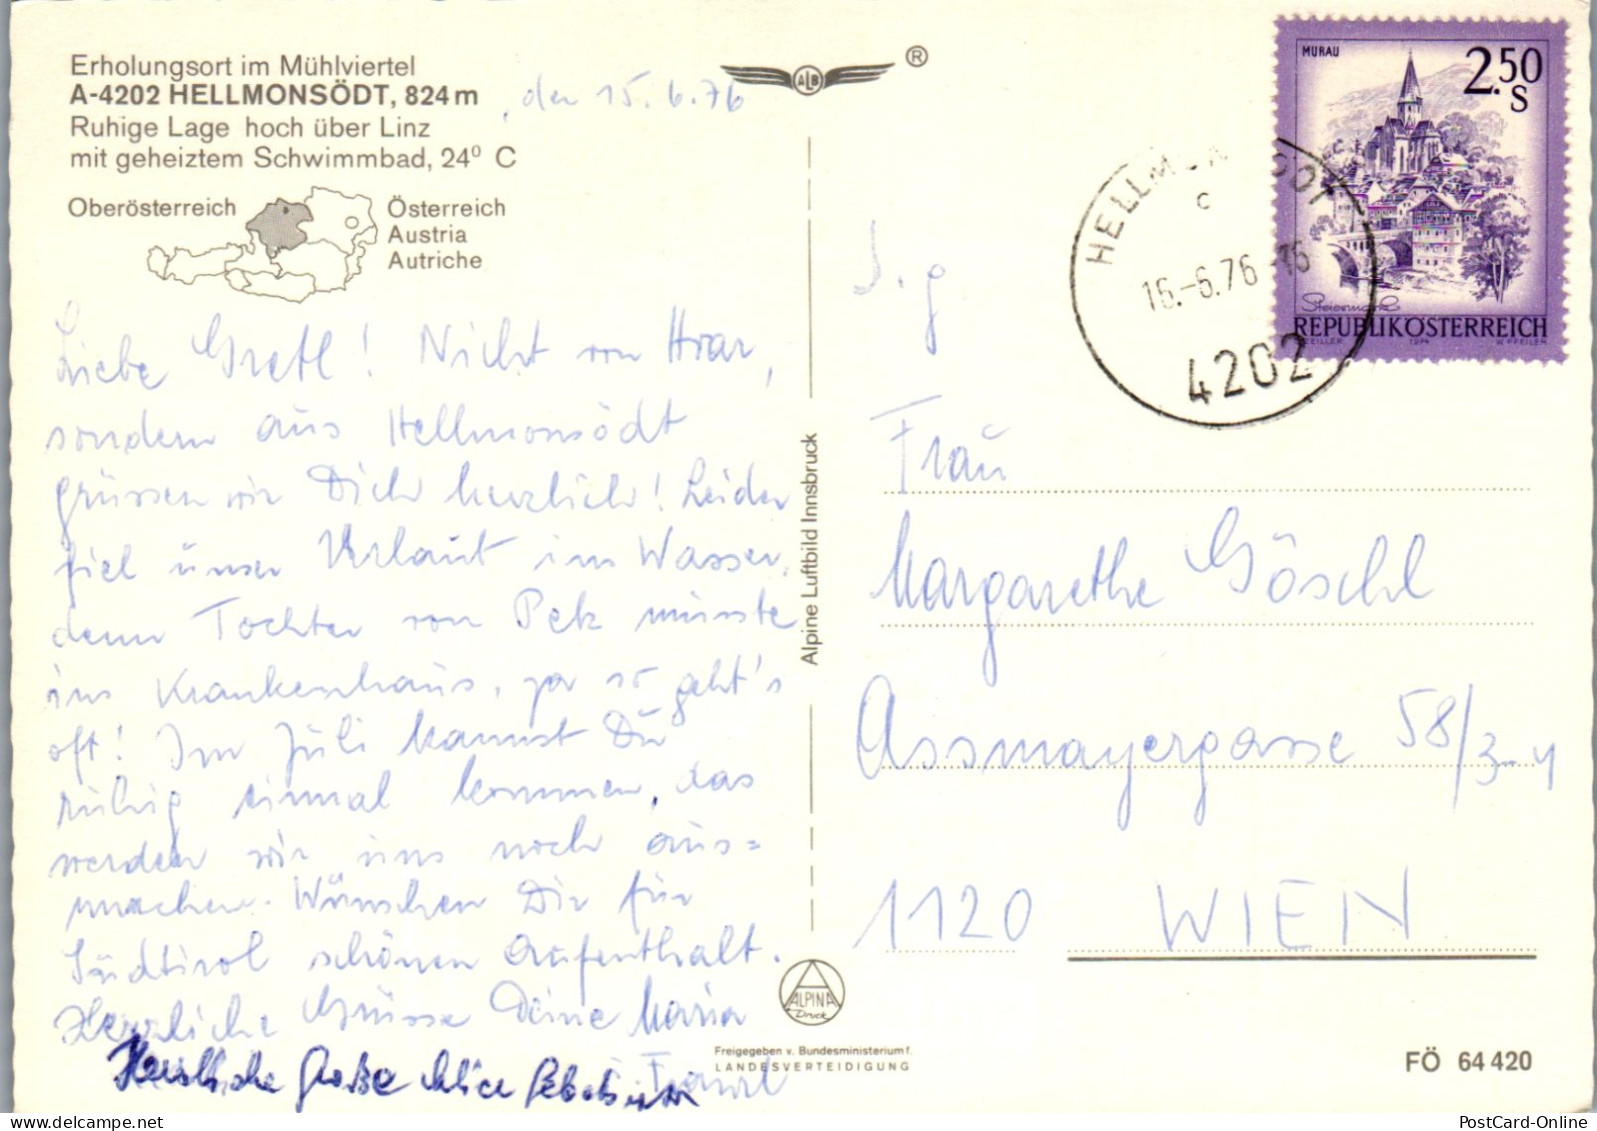 Erholungsort im Mühlviertel
A-4202 HELLMONSÖDT, 824 m
Ruhige Lage hoch über Linz
mit geheiztem Schwimmbad, 24° C
Oberösterreich
Österreich
Austria
Autriche
, den 15.6.76
Liebe Gretl! Nicht von Hvar,
sondern aus Hellmonsödt
grüssen wir Dich herzlich! Leider
fiel unser Urlaub ins Wasser,
denn Tochter von Petz müsste
ins Krankenhaus, ja so geht's
oft! Im Juli kannst Du
ruhig einmal kommen, das
werden wir uns noch aus=
machen. Wünschen Dir für
Südtirol schönen Aufenthalt.
Herzliche Grüsse Deine Maria
Franzl
Herzliche Grüße
ALB
®
Alpine Luftbild Innsbruck
ALPINA
Druck
Freigegeben v. Bundesministerium f.
LANDESVERTEIDIGUNG
MURAU
2.50
S
Steiermark
REPUBLIK ÖSTERREICH
ZEILLER 1974 W. PFEILER
HELLMONSÖDT
c
16.-6.76-16
4202
S.g
Frau
Margarethe Göschl
Assmayergasse 58/3-4
1120 WIEN
FÖ 64 420
PostCard-Online